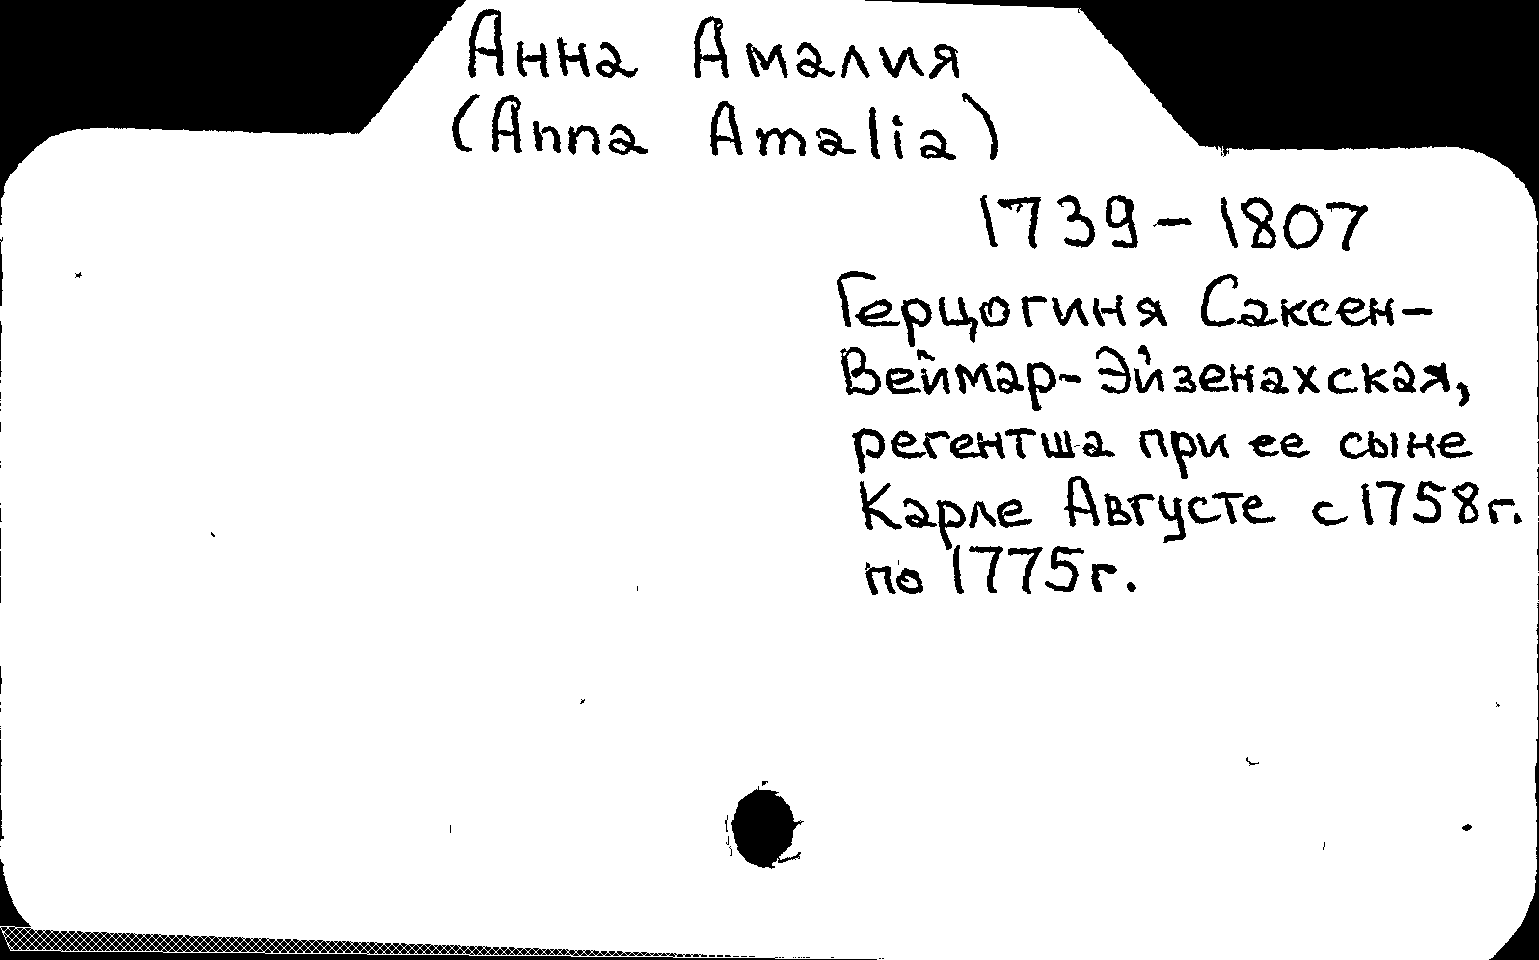 Анна Амалия
(Anna Amalia)
1739-1807
Герцогиня Саксен-
Веймар-Эйзенахская,
регентша при ее сыне
Карле Августе с 1758г.
по 1775г.